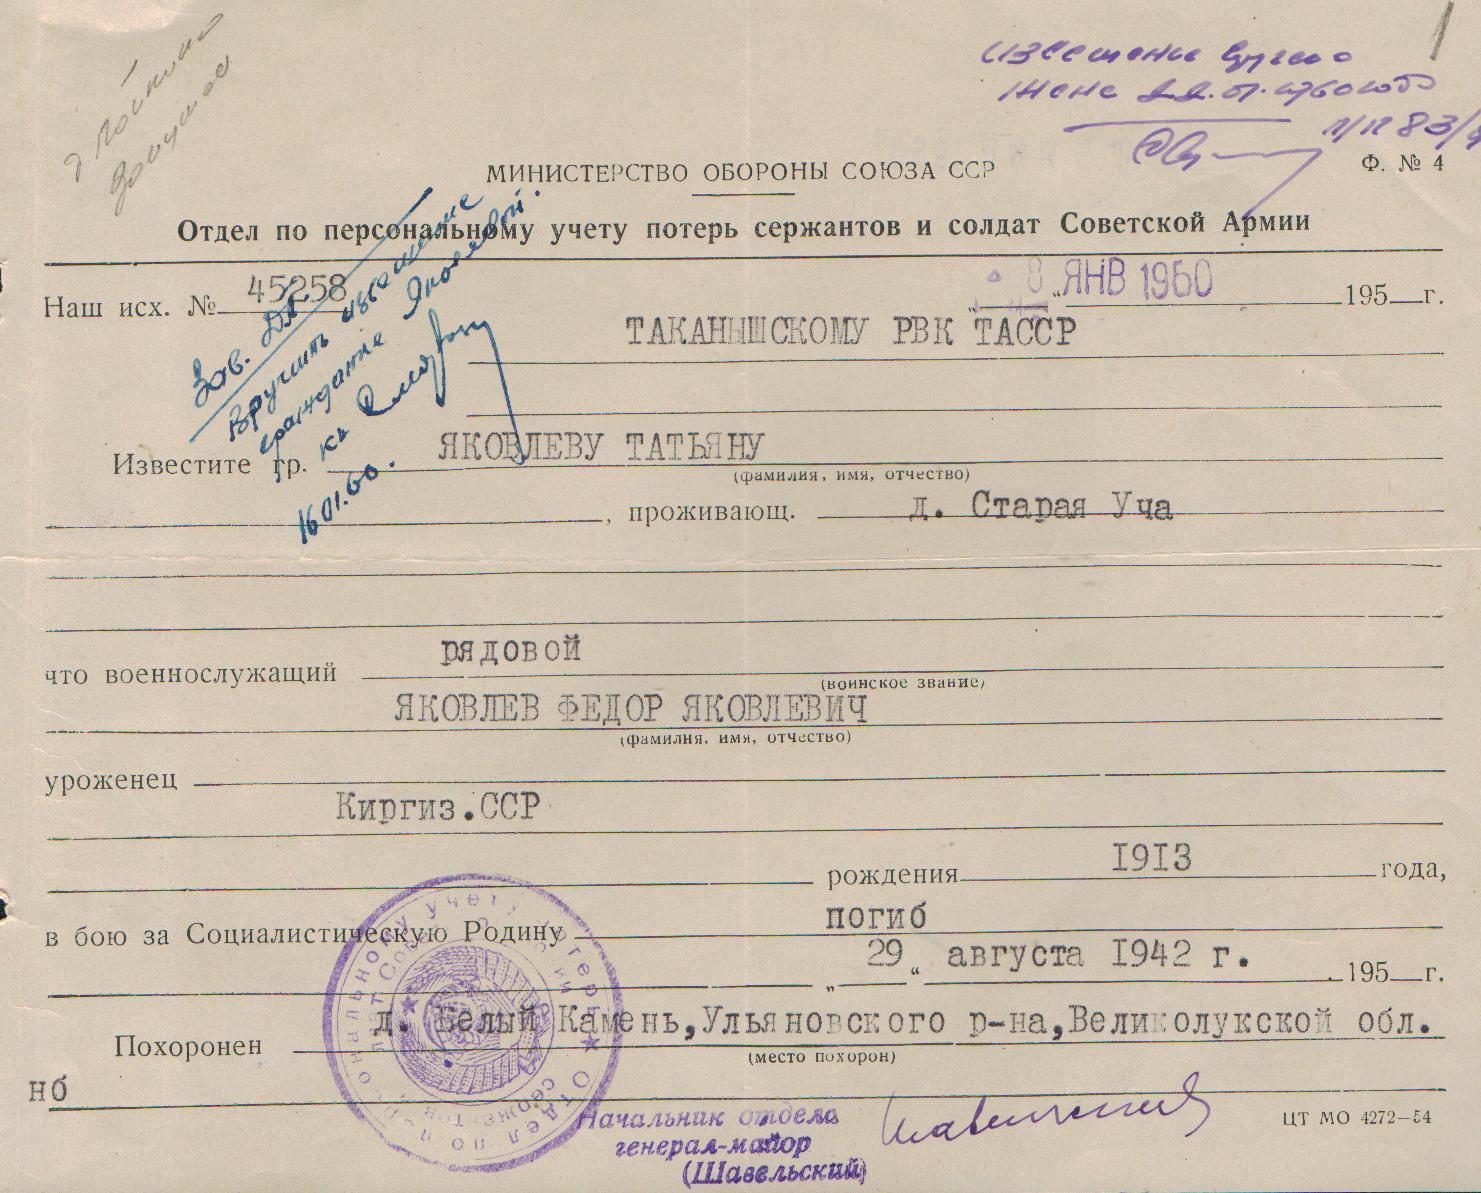 1
Ф. № 4
МИНИСТЕРСТВО ОБОРОНЫ СОЮЗА ССР
Отдел по персональному учету потерь сержантов и солдат Советской Армии
Наш исх. № 45258 „8“ ЯНВ 1960 195 г.
ТАКАНЫШСКОМУ РВК ТАССР
Зав.
Вручить извещение
гражданке Яковлевой.
16.01.60.
Известите гр. ЯКОВЛЕВУ ТАТЬЯНУ
(фамилия, имя, отчество)
, проживающ. д. Старая Уча
что военнослужащий рядовой
(воинское звание)
ЯКОВЛЕВ ФЕДОР ЯКОВЛЕВИЧ
(фамилия, имя, отчество)
уроженец
Киргиз.ССР
рождения 1913 года,
в бою за Социалистическую Родину погиб
„29“ августа 1942 г. 195 г.
Похоронен д. Белый Камень,Ульяновского р-на,Великолукской обл.
(место похорон)
нб
Начальник отдела
генерал-майор
(Шавельский)
ЦТ МО 4272—54